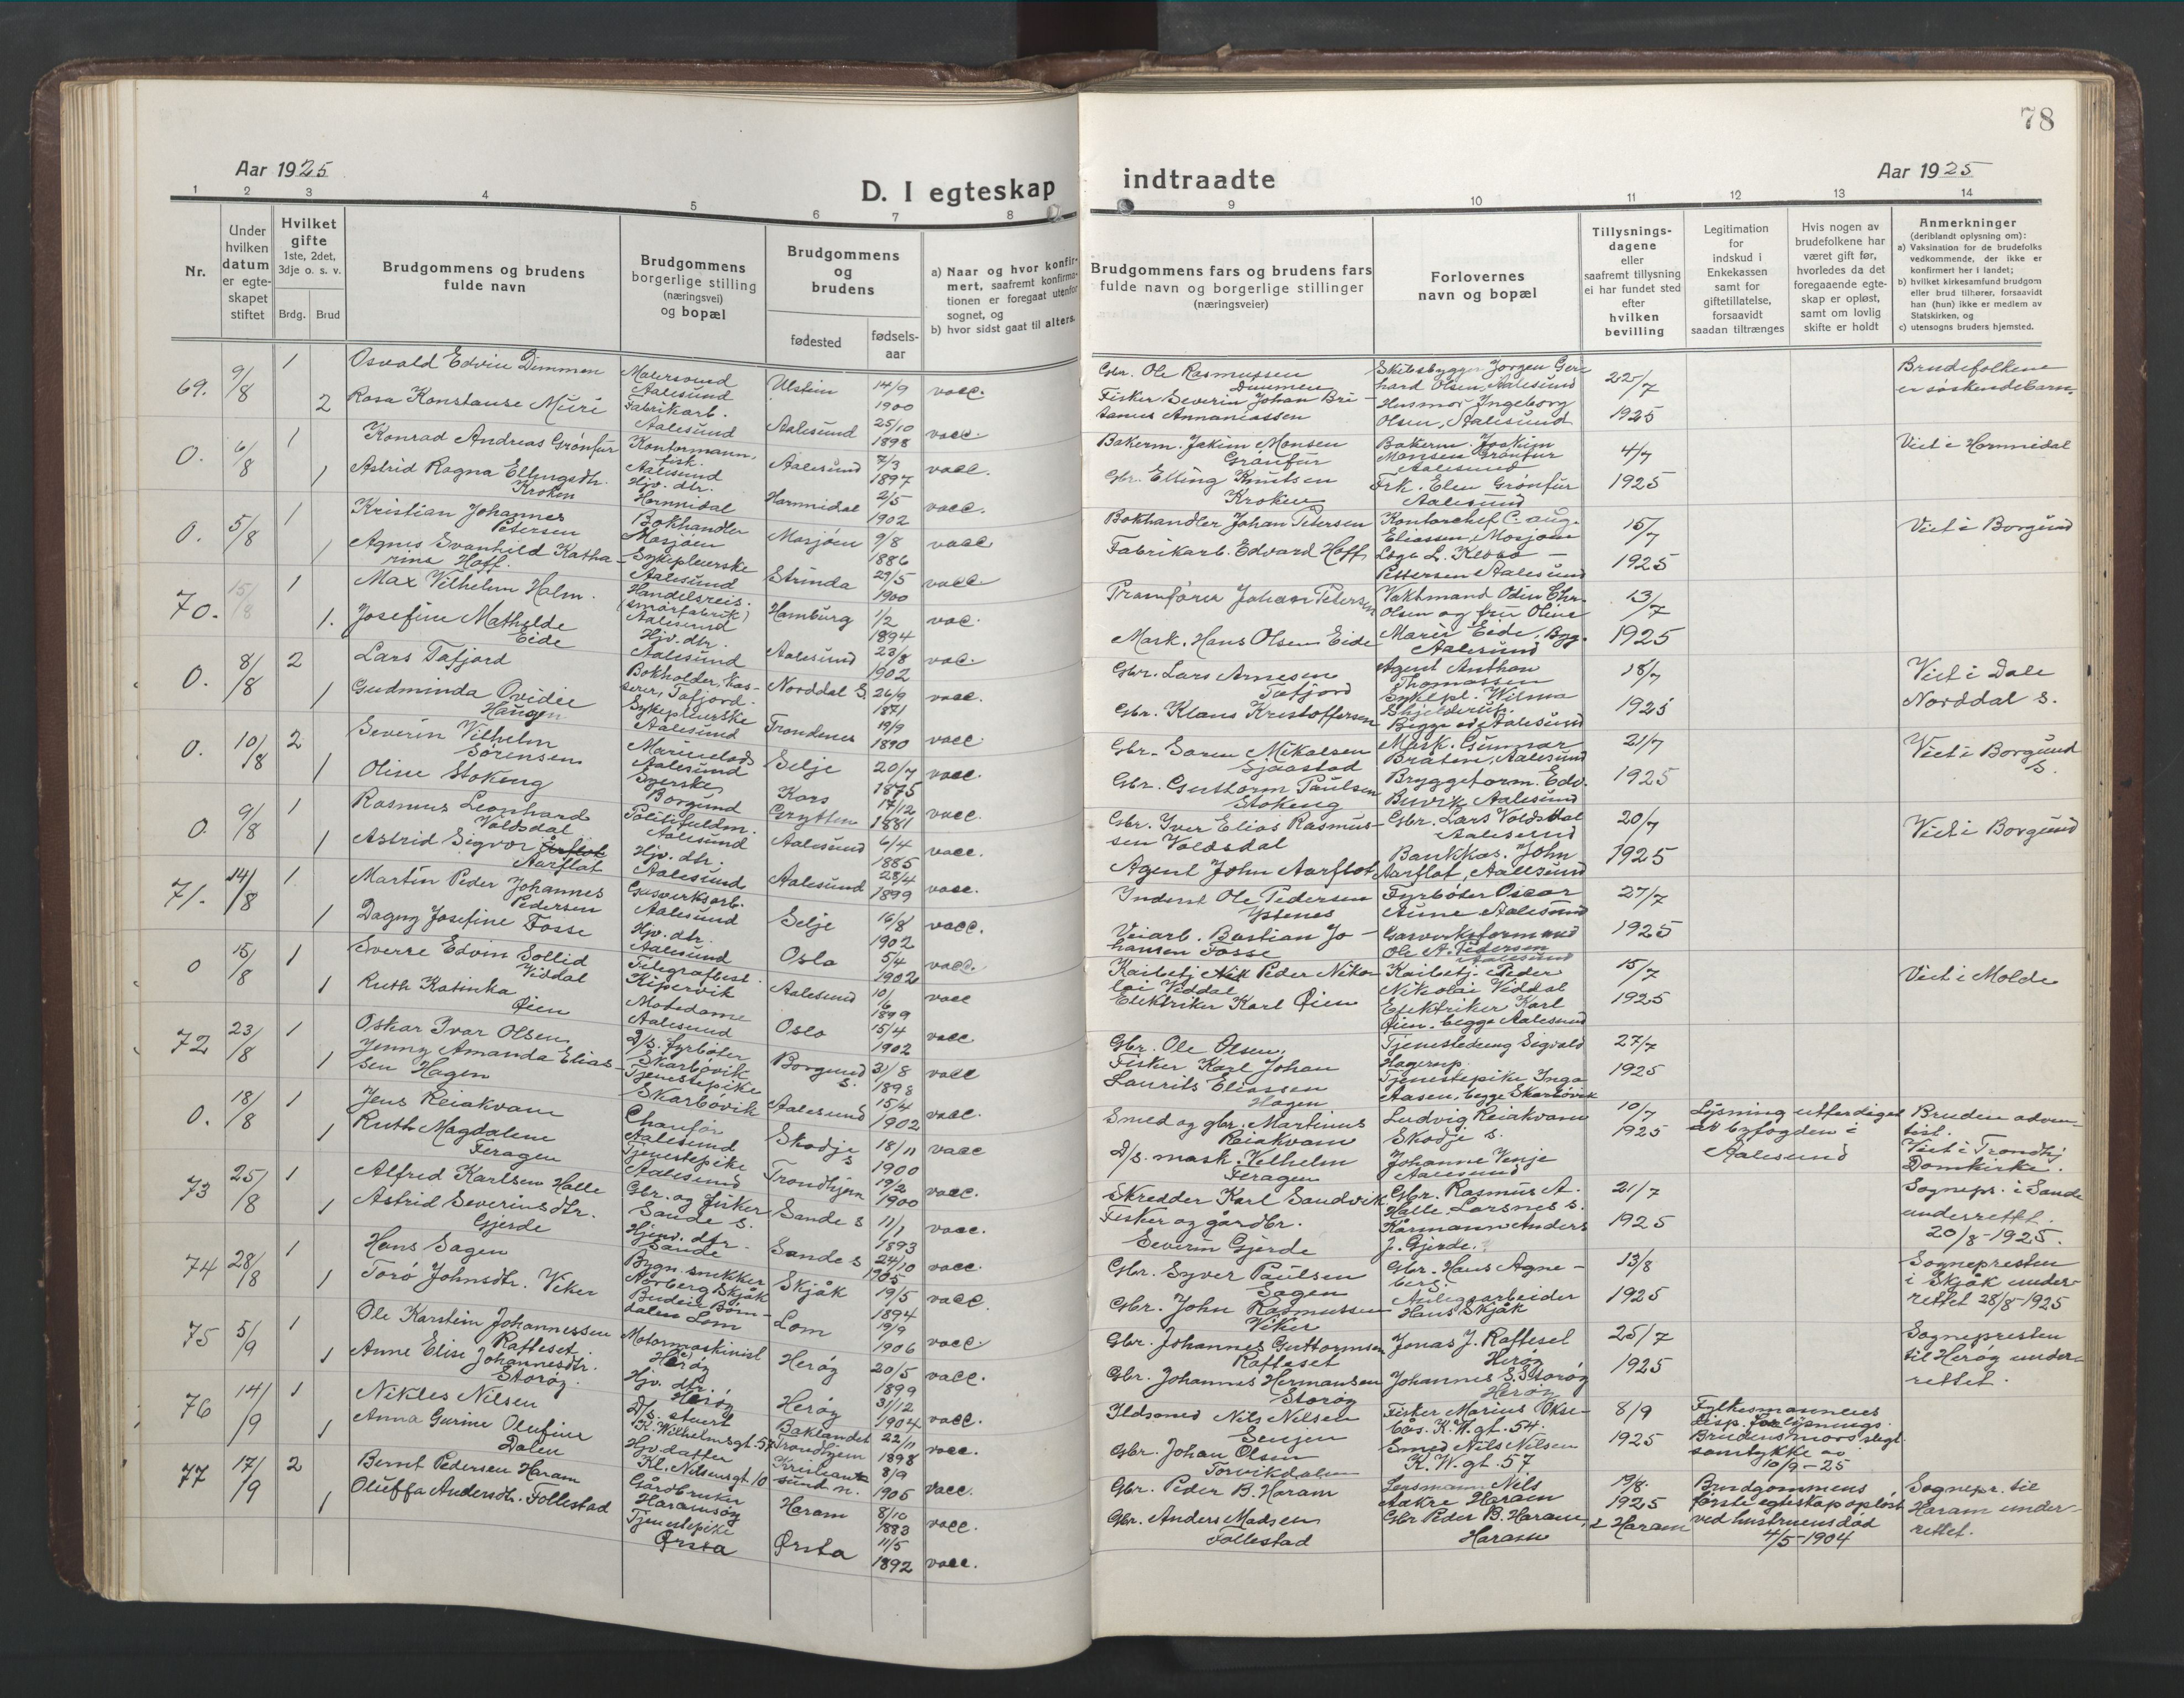 78
Aar 1925
D. I egteskap
indtraadte
Aar 1925
1 2 3 4 5 6 7 8
9 10 11 12 13 14
Nr.
Under hvilken datum er egte-skapet stiftet
Hvilket gifte
1ste, 2det, 3dje o. s. v.
Brdg. Brud
Brudgommens og brudens fulde navn
Brudgommens borgerlige stilling (næringsvei) og bopæl
Brudgommens og brudens
fødested
fødsels-aar
a) Naar og hvor konfir-mert, saafremt konfirma-tionen er foregaat utenfor sognet, og
b) hvor sidst gaat til alters.
Brudgommens fars og brudens fars fulde navn og borgerlige stillinger (næringsveier)
Forlovernes navn og bopæl
Tillysnings-dagene eller saafremt tillysning ei har fundet sted efter hvilken bevilling
Legitimation for indskud i Enkekassen samt for giftetillatelse, forsaavidt saadan tiltrænges
Hvis nogen av brudefolkene har været gift før, hvorledes da det foregaaende egte-skap er opløst, samt om lovlig skifte er holdt
Anmerkninger
(deriblandt oplysning om):
a) Vaksination for de brudefolks vedkommende, der ikke er konfirmert her i landet;
b) hvilket kirkesamfund brudgom eller brud tilhører, forsaavidt han (hun) ikke er medlem av Statskirken, og
c) utensogns bruders hjemsted.
69. 9/8 1 Osvald Edvin Dimmen Malersvend Aalesund Ulstein 14/9 1900 vacc.
Gbr. Ole Rasmussen Dimmen Skibsbygger Jørgen Gerhard Olsen, Aalesund 22/7 1925 Brudefolkene er søskendebarn
2 Rosa Konstanse Muri Fabrikarb. Aalesund Aalesund 25/10 1898 vacc.
Fisker Severin Johan Bri-tanus Annaniassen Husmor Ingeborg Olsen, Aalesund
0. 6/8 1 Konrad Andreas Grønfur Kontormann, fisk. Aalesund Aalesund 7/3 1897 vacc.
Bakerm. Jakim Monsen Grønfur Bakerm. Joakim Monsen Grønfur Aalesund 4/7 1925 Viet i Hornnidal
1 Astrid Ragna Ellingsdtr. Kroken Hjv. dtr. Hornnidal Hornnidal 2/5 1902 vacc.
Gbr. Elling Knutsen Kroken Frk. Elen Grønfur Aalesund
0. 5/8 1 Kristian Johannes Petersen Bokhandler Mosjøen Mosjøen 9/8 1886 vacc.
Bokhandler Johan Petersen Kontorchef C. Aug. Eliassen, Mosjøen 15/7 1925 Viet i Borgund
1 Agnes Svanhild Katha-rina Hoff. Sykepleierske Aalesund Strinda 29/5 1900 vacc.
Fabrikarb. Edvard Hoff Pettersen Aalesund
70. 15/8 1 Max Vilhelm Holm. Handelsreis. (smørfabrik) Aalesund Hamburg 1/2 1894 vac.
Pramfører Johan Petersen Vaktmand Odin Chr. Olsen og fru Oline 13/7 1925
1. Josefine Mathilde Eide Hjv. dtr. Aalesund Aalesund 23/8 1902 vac.
Mask. Hans Olsen Eide Marie Eide, Byg. Aalesund
0. 8/8 2 Lars Tafjord Bokholder, Kas-serer, Tafjord. Norddal S. 26/9 1871 vacc.
Gbr. Lars Arnesen Tafjord Agent Anthon Thomassen 18/7 1925 Viet i Dale Norddal s.
1 Gudminda Ovidie Haugen Sykepleierske Aalesund Trondenes 19/9 1890 vacc.
Gbr. Klaus Kristoffersen Sykepl. Wilma Skjelderup. Begge av Aalesund
0. 10/8 2 Severin Vilhelm Sørensen Aalesund Selje 20/7 1875 vacc.
Gbr. Søren Mikalsen Sjaastad Mask. Gunnar Bråten, Aalesund 21/7 1925 Viet i Borgund s.
1 Oline Stokeng Syerske Borgund Kors Grytten 17/12 1881 vacc.
Gbr. Guttorm Paulsen Stokeng Bryggeform. Edv. Aalesund
0. 9/8 1 Rasmus Leonhard Voldsdal Politifuldm. Aalesund Aalesund 6/4 1885 vacc.
Gbr. Iver Elias Rasmus-sen Voldsdal Gbr. Lars Voldsdal Aalesund 20/7 1925 Viet i Borgund
1 Astrid Sigvor Aarflot Hjv. dtr. Aalesund Aalesund 28/4 1899 vacc.
Agent John Aarflot Bankkas. John Aarflot, Aalesund
71. 14/8 1 Martin Peder Johannes Pedersen Gasverksarb. Aalesund Selje 16/8 1902 vacc.
Inderst Ole Pedersen Ystenes Fyrbøter Oscar Aune Aalesund 27/7 1925
1 Dagny Josefine Fosse Hjv. dtr. Aalesund Oslo 5/4 1902 vacc.
Veiarb. Bastian Jo-hansen Fosse Gasverksformand Ole A. Pedersen Aalesund
0 15/8 1 Sverre Edvin Sollid Viddal Telegrafbest. Kipervik Aalesund 10/6 1899 vacc
Kaibetj. Peder Niko-lai Viddal Kaibetj. Peder Nikolai Viddal 15/7 1925 Viet i Molde
1 Ruth Katinka Øien Motedame Aalesund Oslo 15/4 1902 vacc
Elektriker Karl Øien Elektriker Karl Øien. begge Aalesund
72 23/8 1 Oskar Ivar Olsen D/s. fyrbøter Skarbøvik Borgund s. 31/8 1898 vacc
Gbr. Ole Olsen, Tjenestedreng Sigvald Hagerup. 27/7 1925
1 Jenny Amanda Elias-sen Hagen Tjenestepike Skarbøvik Aalesund 15/4 1902 vacc.
Fisker Karl Johan Laurits Eliassen Hagen Tjenestepike Inga Aasen, begge Skarbøvik
0. 18/8 1 Jens Reiakvam Chaufør Aalesund Skodje s 18/11 1900 vacc
Smed og gbr. Martinus Reiakvam Ludvig Reiakvam Skodje s. 10/7 1925 Lysning utferdiget av byfogden i Aalesund Bruden adven-tist. Viet i Trondhj Domkirke.
1 Ruth Magdalene Feragen Tjenestepike Aalesund Trondhjem 19/2 1900 vacc.
D/s. mask. Vilhelm Feragen Johanne Venje Aalesund
73 25/8 1 Alfred Karlsen Halle Gbr. og fisker Sande s. Sande s 11/1 1893 vacc.
Skredder Karl Sandvik Gbr. Rasmus A. Halle, Larsnes s. 21/7 1925 Sognepr. i Sande underrettet. 20/8-1925.
1 Astrid Severinsdtr. Gjerde Hjemv. dtr. Sande Sande s 24/10 1905 vacc.
Fisker og gårdbr. Severin Gjerde Kårmann Anders J. Gjerde.
74 28/8 1 Hans Sagen Bygn. snekker Skjåk Skjåk 19/5 1894 vacc.
Gbr. Syver Paulsen Sagen Gbr. Hans Agne-berg. 13/8 1925 Sognepresten i Skjåk under-rettet 28/8-1925
1 Torø Johnsdtr. Viker Budeie Lom Lom 19/9 1906 vacc
Gbr. John Rasmussen Viker Anlegsarbeider Hans Skjåk
75 5/9 1 Ole Karstein Johannessen Rafteset. Motormaskinist Herøy Herøy 20/5 1899 vacc.
Gbr. Johannes Guttormsen Rafteset Jonas J. Rafteset Herøy 25/7 1925 Sognepresten til Herøy under-rettet.
1 Anne Elise Johannesdtr. Storøy. Hjv. dtr. Herøy Herøy 31/12 1904 vacc.
Gbr. Johannes Hermansen Storøy Johannes S. Storøy Herøy
76 14/9 1 Nikles Nilsen D/s. stuert K. Wilhelmsgt. 57 Baklandet Trondhjem 22/11 1898 vacc.
Ildsmed Nils Nilsen Senjen Fisker Marius Økse-bås. K. W. gt. 54. 8/9 1925 Fylkesmannens disp. for lysnings. Brudens mors skgt. samtykke av 10/9-25
1 Anna Gurine Olufine Dalen Hjv. datter Kl. Nilsensgt. 10 Kristian-sund n. 8/9 1905 vacc.
Gbr. Johan Olsen Torvikdalen Smed Nils Nilsen K. W. gt. 57
77 17/9 2 Bernt Pedersen Haram Gårdbruker Haramsøy Haram 8/10 1883 vacc.
Gbr. Peder B. Haram Lensmann Nils Aakre Haram 19/8. 1925 i Haram Brudgommens første egteskap opløst ved hustruens død 4/5-1904 Sognepr. til Haram under-rettet.
1 Oluffa Andersdtr. Follestad Tjenestepike Ørsta Ørsta 11/5 1892 vacc.
Gbr. Anders Madsen Follestad Gbr Peder B. Haram, Haram